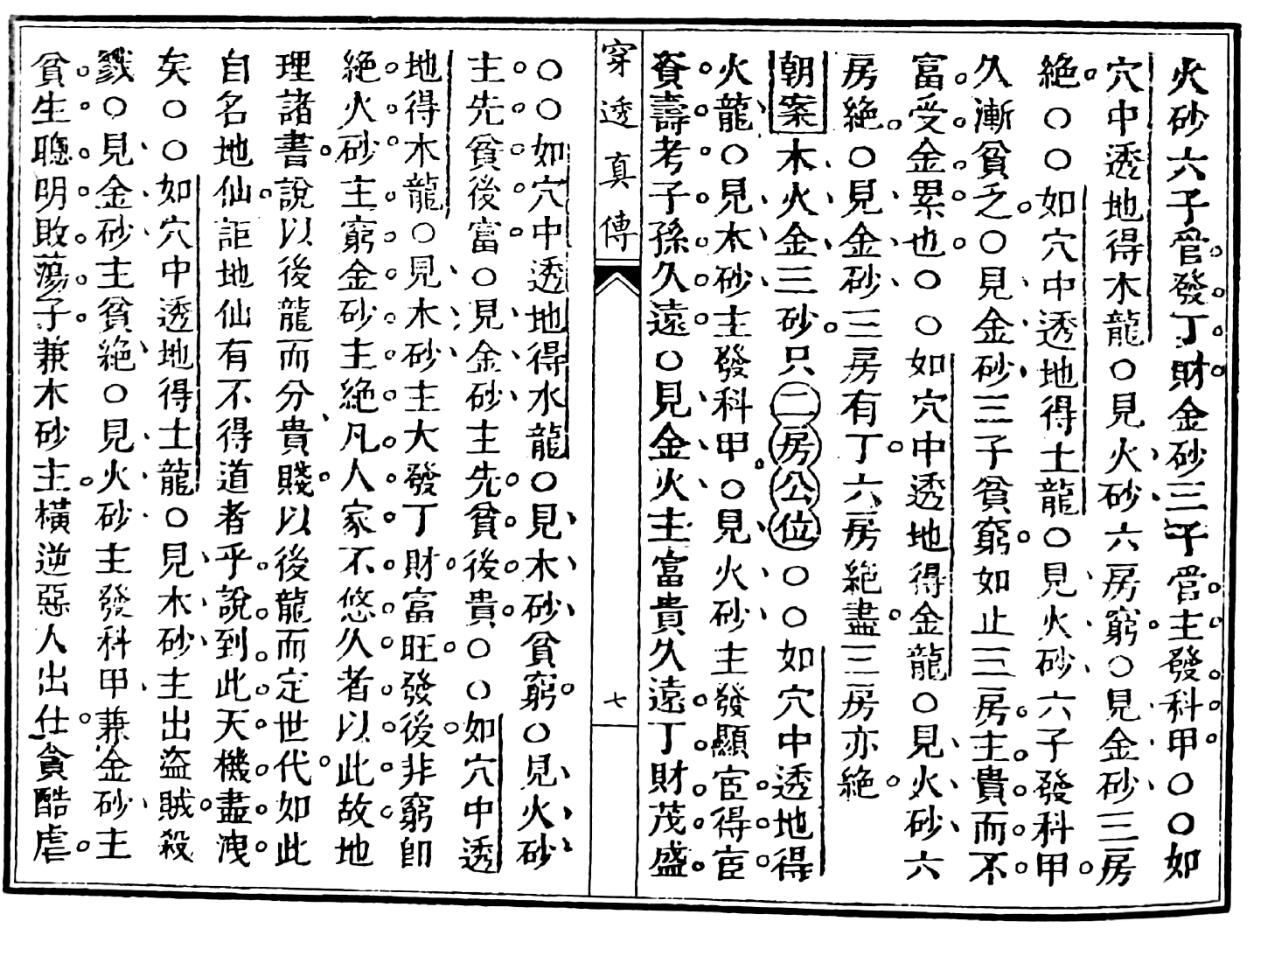 火砂六子管發丁財金砂三子管主發科甲〇〇如
穴中透地得木龍〇見火砂六房窮〇見金砂三房
絶〇〇如穴中透地得土龍〇見火砂六子發科甲
久漸貧乏〇見金砂三子貧窮如止三房主貴而不
富受金累也〇〇如穴中透地得金龍〇見火砂六
房絶〇見金砂三房有丁六房絶盡三房亦絶
朝案木火金三砂只二房公位〇〇如穴中透地得
火龍〇見木砂主發科甲〇見火砂主發顯宦得宦
資壽考子孫久遠〇見金火主富貴久遠丁財茂盛
穿透真傳
七
〇〇如穴中透地得水龍〇見木砂貧窮〇見火砂
主先貧後富〇見金砂主先貧後貴〇〇如穴中透
地得木龍〇見木砂主大發丁財富旺發後非窮即
絶火砂主窮金砂主絶凡人家不悠久者以此故地
理諸書說以後龍而分貴賤以後龍而定世代如此
自名地仙詎地仙有不得道者乎說到此天機盡洩
矣〇〇如穴中透地得土龍〇見木砂主出盜賊殺
戮〇見金砂主貧絶〇見火砂主發科甲兼金砂主
貧生聰明敗蕩子兼木砂主橫逆惡人出仕貪酷虐